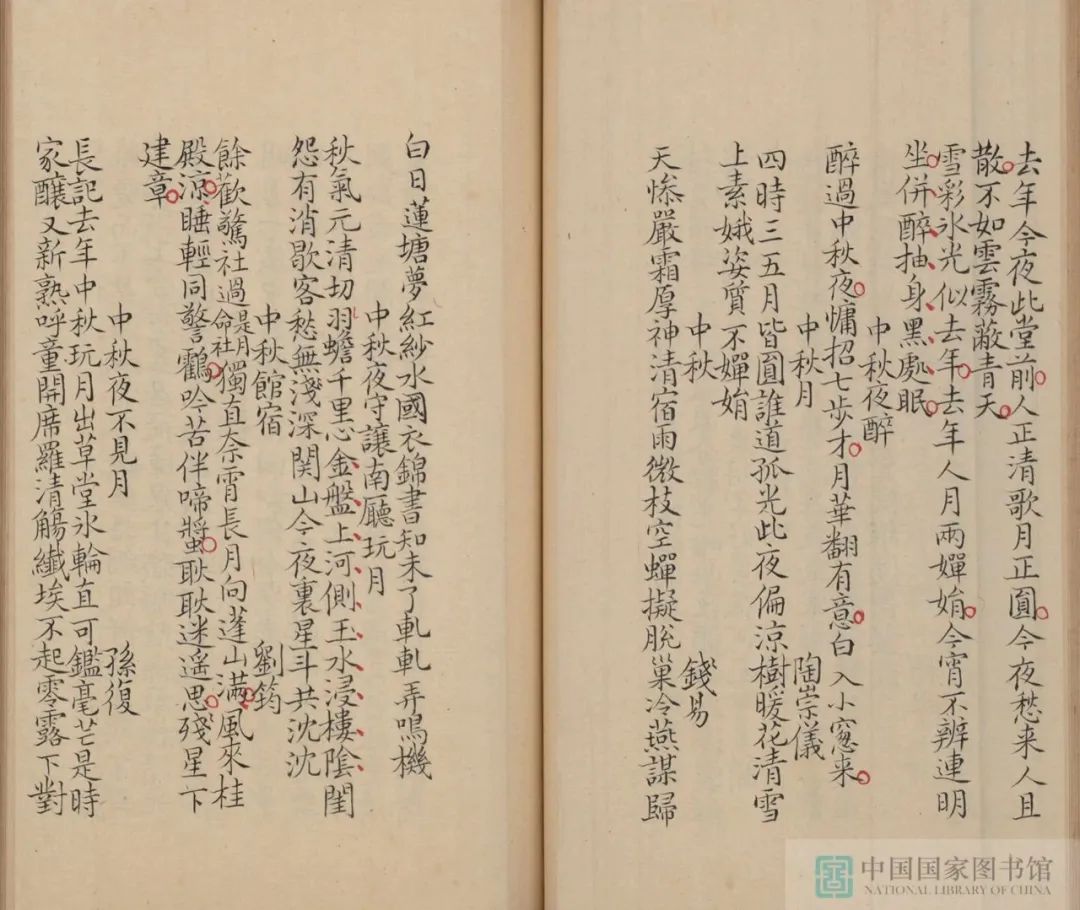 去年今夜此堂前人正清歌月正圓今夜愁来人且
散不如雲霧蔽青天
雪彩氷光似去年去年人月兩嬋娟今宵不辨連明
坐併醉抽身黑處眠
中秋夜醉
醉過中秋夜慵招七歩才月華翻有意白入小窓来
中秋月 陶崇儀
四時三五月皆圓誰道孤光此夜偏涼樹暖花清雪
上素娥姿質不嬋娟
中秋 錢易
天慘嚴霜厚神清宿雨微枝空蟬擬脱巢冷燕謀歸
白日蓮塘夢紅紗水國衣錦書知未了軋軋弄鳴機
中秋夜守讓南廳玩月
秋氣元清切羽蟾千里心金盤上河側玉水浸樓陰閨
怨有消歇客愁無淺深関山今夜裏星斗共沈沈
中秋館宿 劉筠
餘歡驚社過是月命社獨直奈宵長月向蓬山满風來桂
殿涼睡輕同警鶴吟苦伴啼螿耿耿迷遥思殘星下
建章
中秋夜不見月 孫復
長記去年中秋玩月出草堂氷輪直可鑑毫芒是時
家釀又新熟呼童開席羅清觴纖埃不起零露下對
中国国家图书馆
NATIONAL LIBRARY OF CHINA